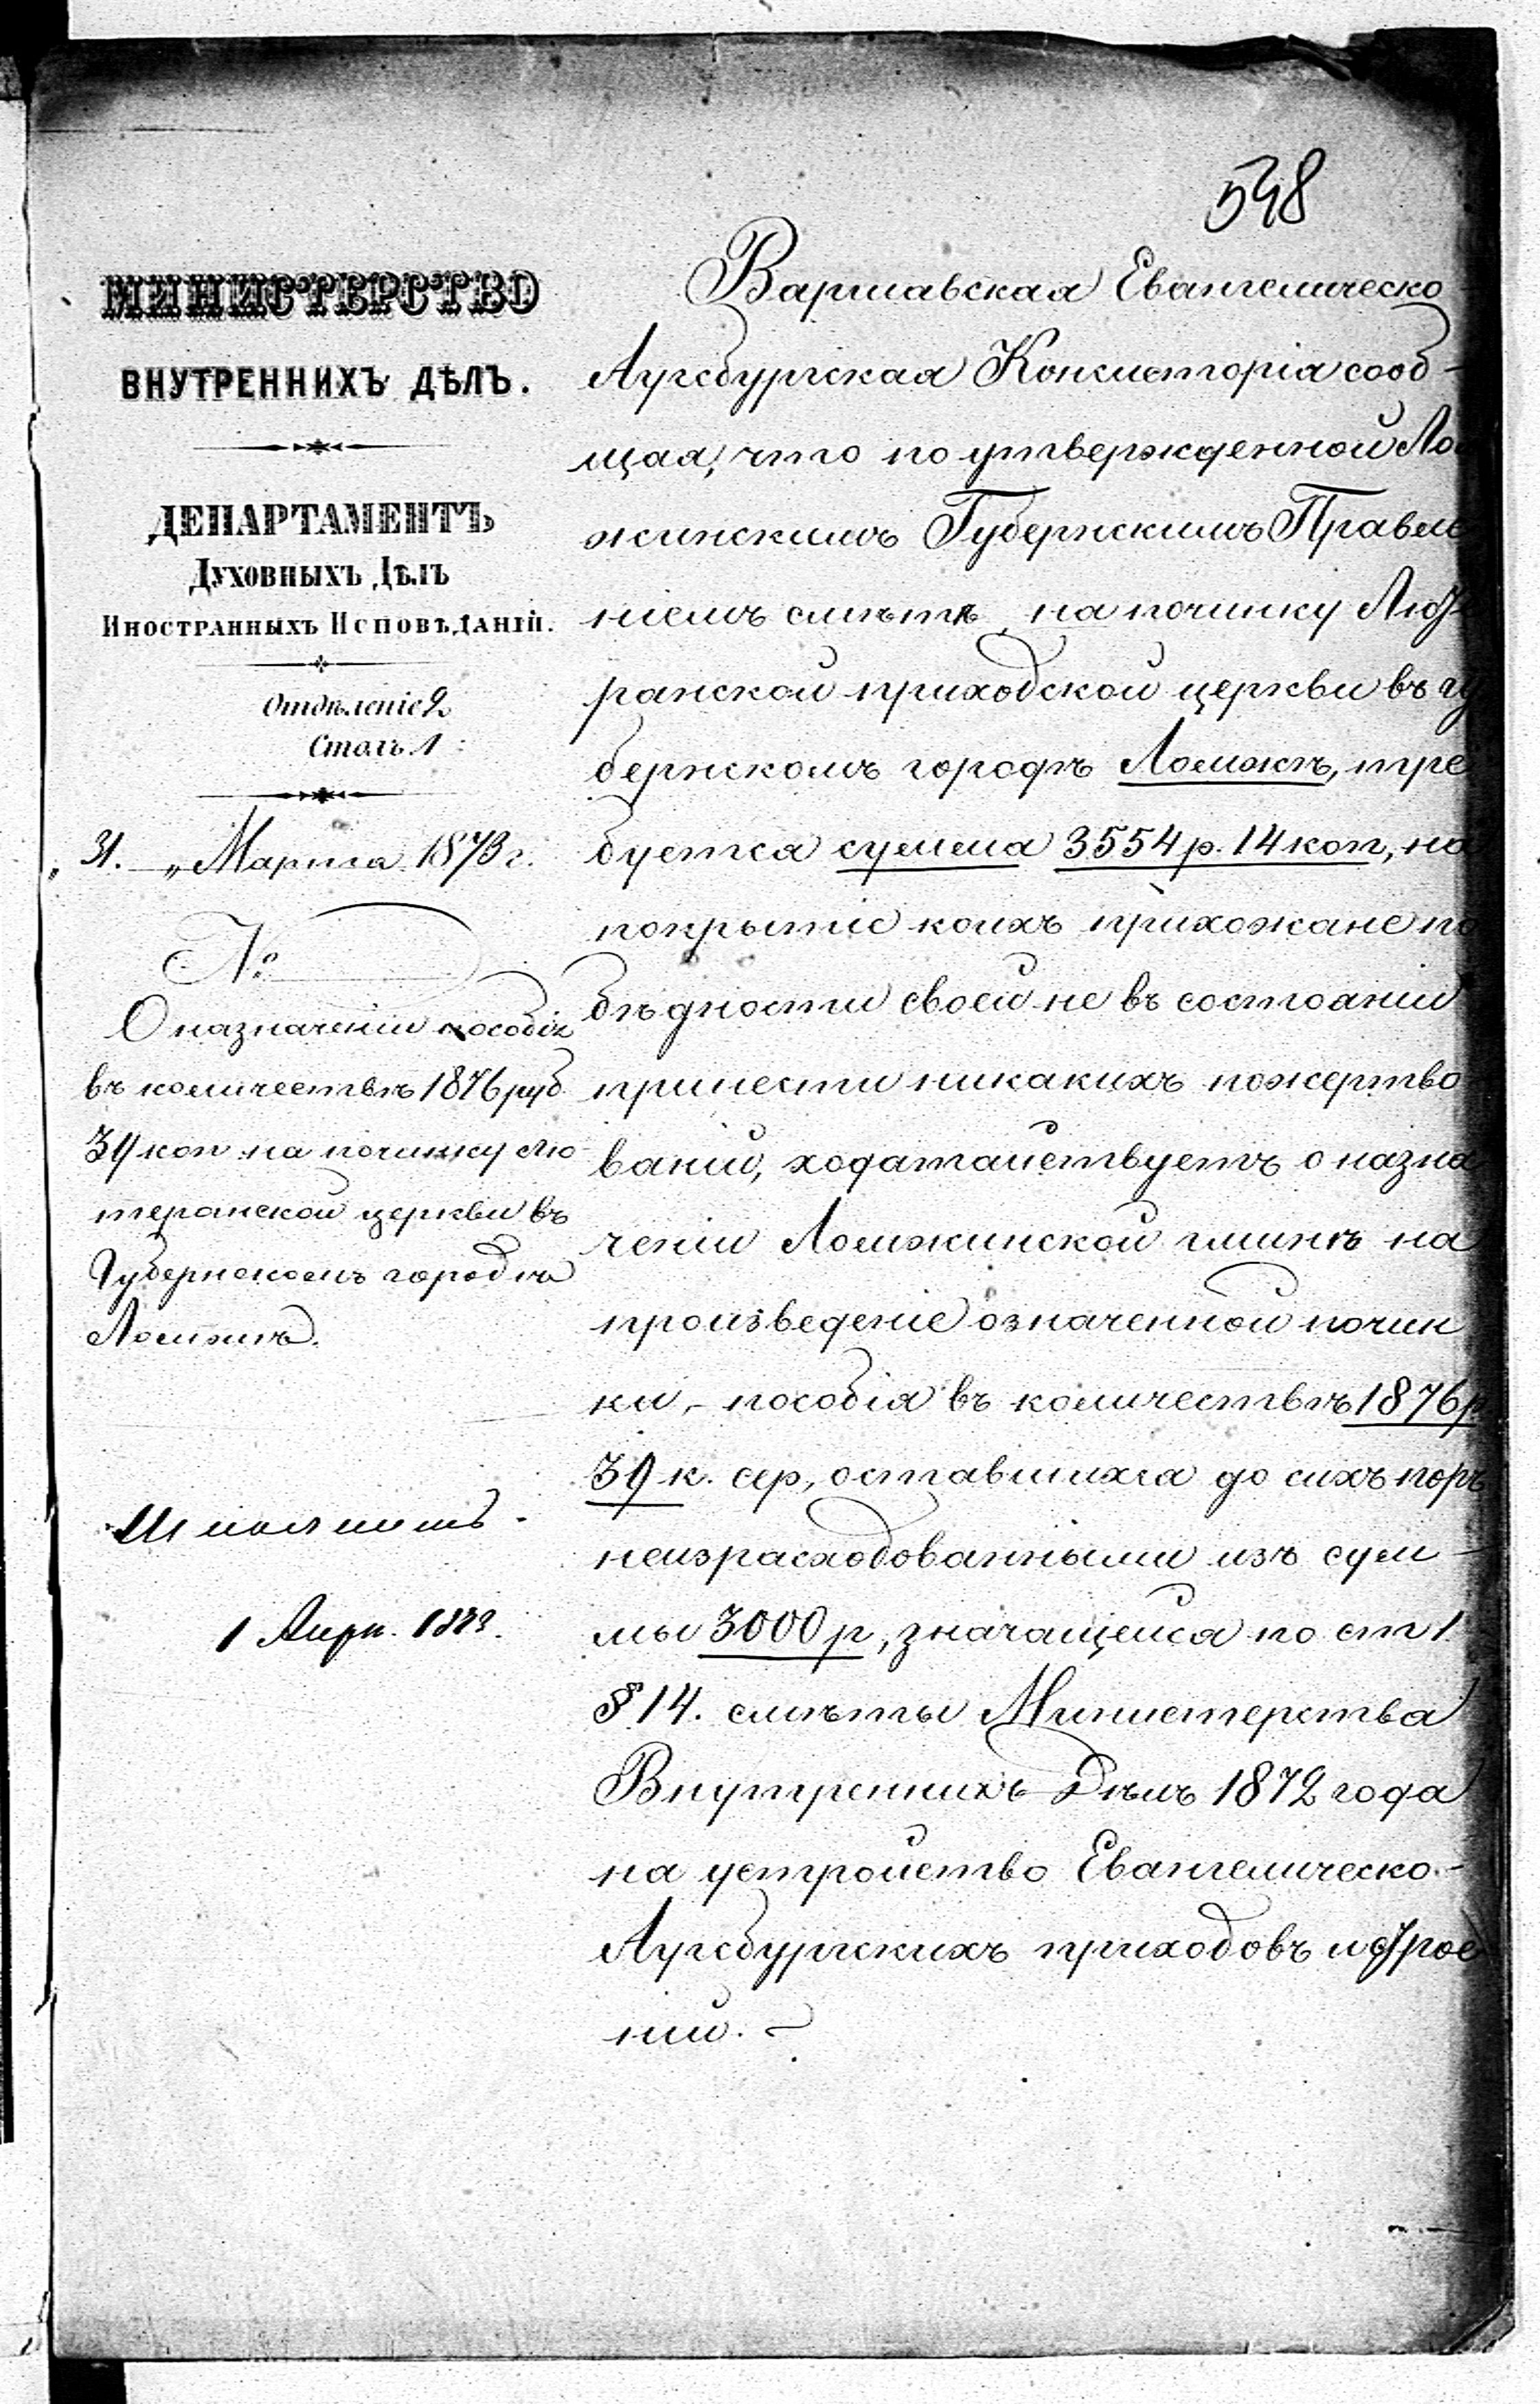 548
МИНИСТЕРСТВО
ВНУТРЕННИХЪ ДѢЛЪ.
ДЕПАРТАМЕНТЪ
ДУХОВНЫХЪ ДѢЛЪ
ИНОСТРАННЫХЪ ИСПОВѢДАНІЙ.
Отдѣленіе 2
Столъ 1
„31. „ Марта 1873 г.
№
О назначеніи пособія
въ количествѣ 1876 руб.
39 коп. на починку Лю
теранской церкви въ
Губернскомъ городѣ
Ломжѣ.
Исполнить.
1 Апр. 1873.
Варшавская Евангелическо
Аугсбургская Консисторія сооб-
щая, что по утвержденной Лом
жинскимъ Губернскимъ Правле
ніемъ смѣтѣ, на починку Люте
ранской приходской церкви въ гу
бернскомъ городѣ Ломжѣ, тре
буется сумма 3554 р. 14 коп, на
покрытіе коихъ прихожане по
бѣдности своей не въ состояніи
принести никакихъ пожертво
ваній, ходатайствуетъ о назна
ченіи Ломжинской гминѣ на
произведеніе означенной почин
ки, - пособія въ количествѣ 1876 р
39 к. сер, оставшихся до сихъ поръ
неизрасходованными изъ сум-
мы 3000 р, значащейся по ст 1.
§ 14. смѣты Министерства
Внутреннихъ Дѣлъ 1872 года
на устройство Евангелическо-
Аугсбургскихъ приходовъ и строе
ній. -